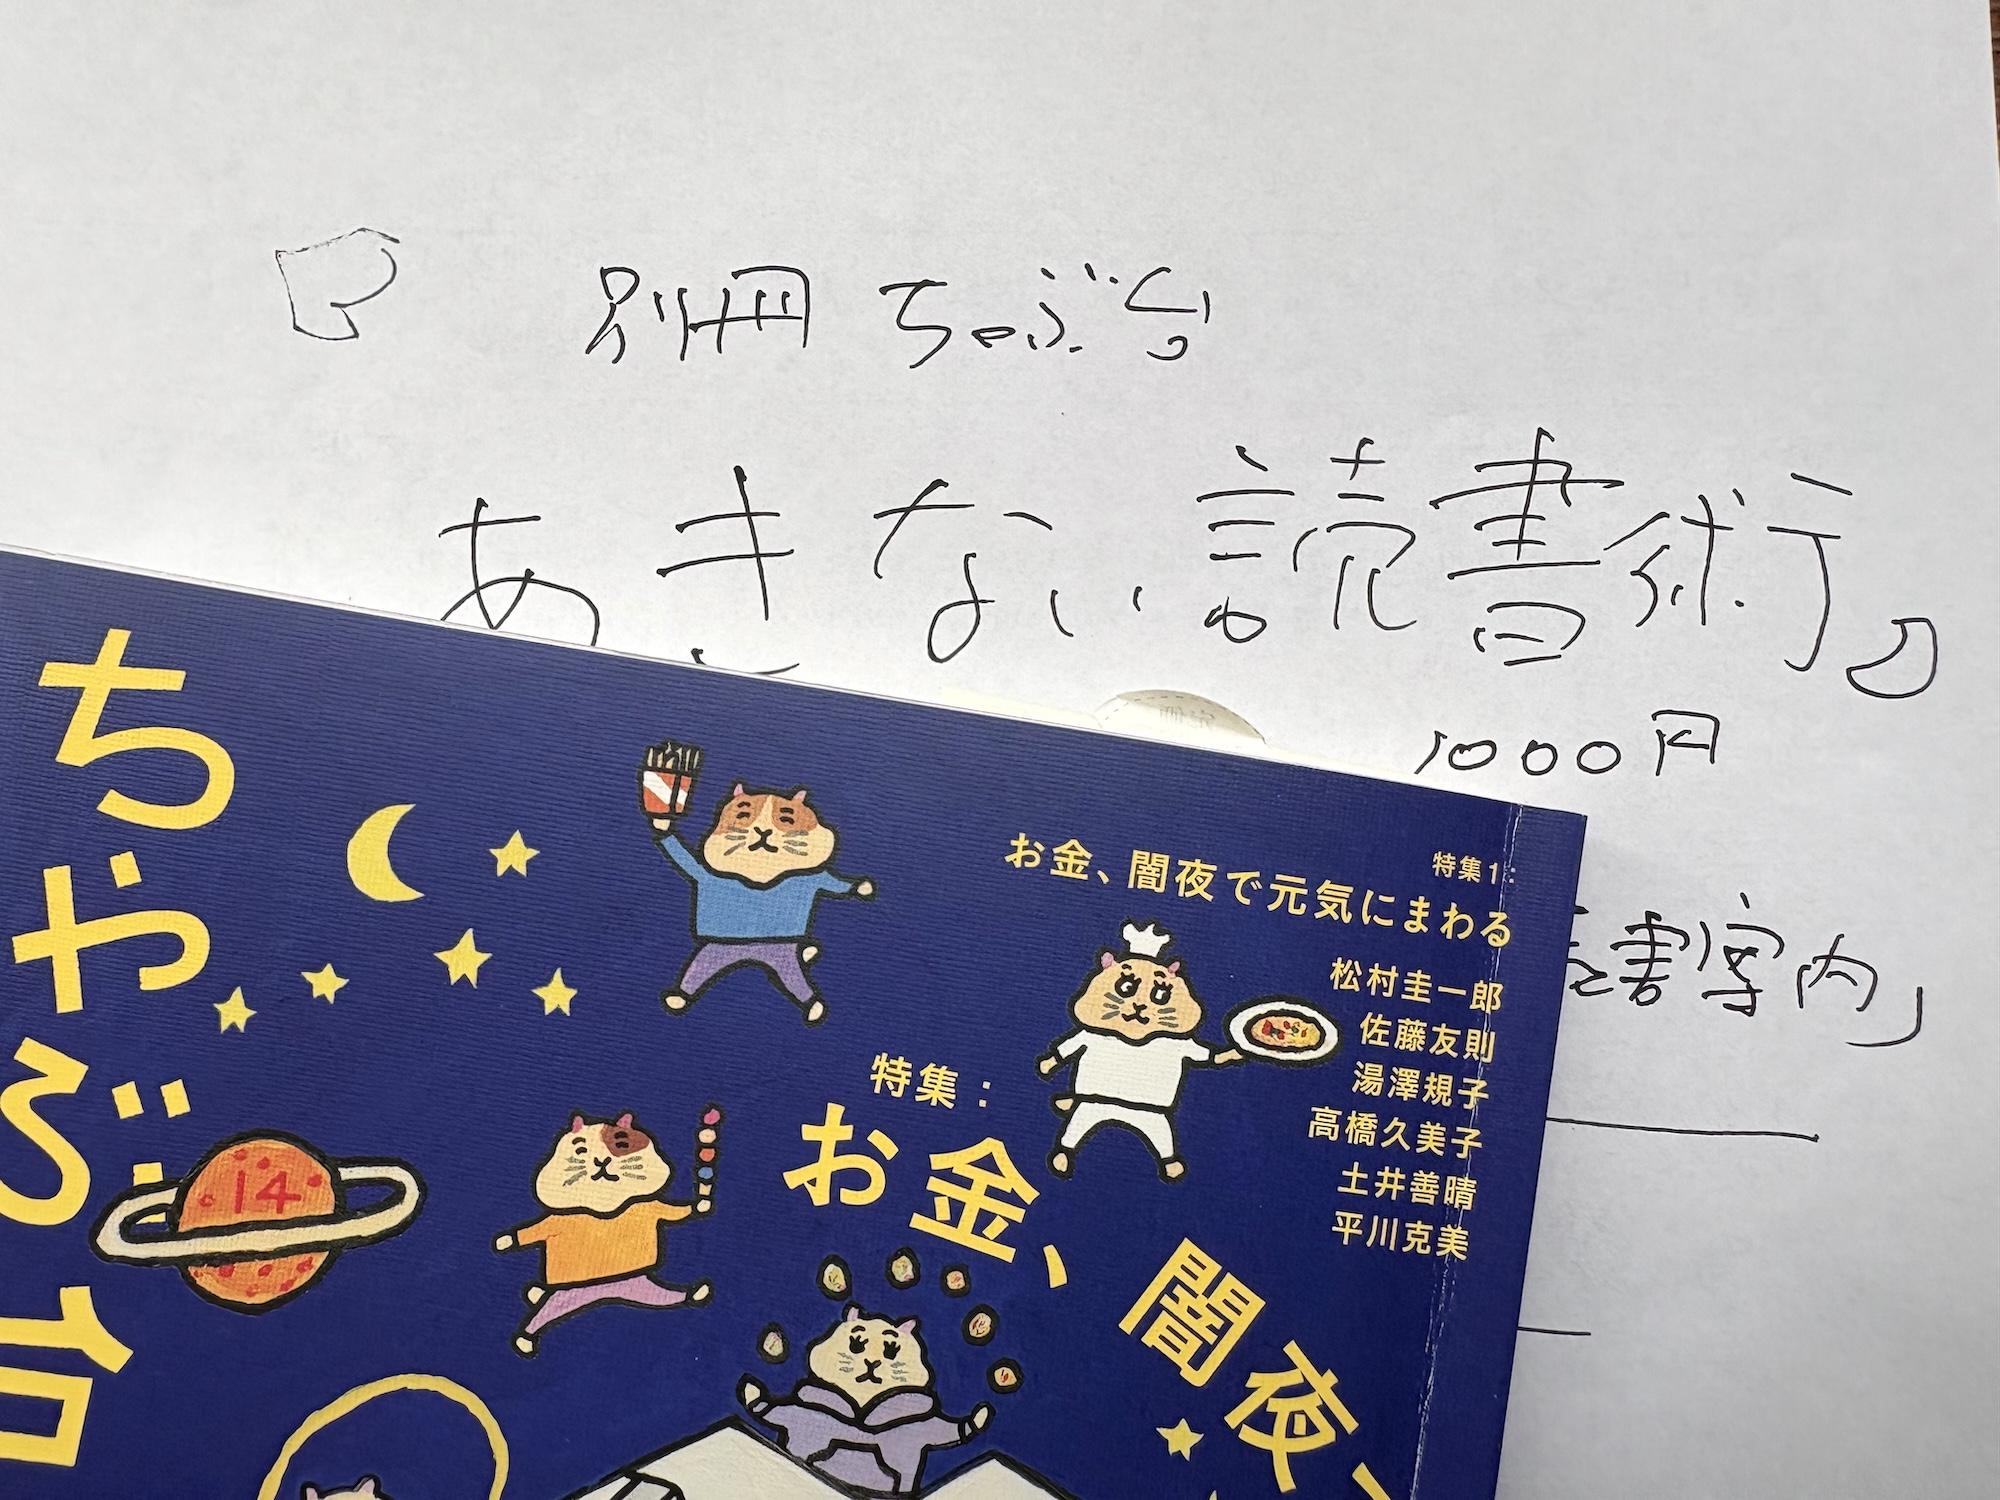 『別冊ちゃぶ台
あきない読書術』
1000円
書案内」
ちゃぶ台
14
特集1:
お金、闇夜で元気にまわる
松村圭一郎
佐藤友則
湯澤規子
高橋久美子
土井善晴
平川克美
特集:
お金、闇夜